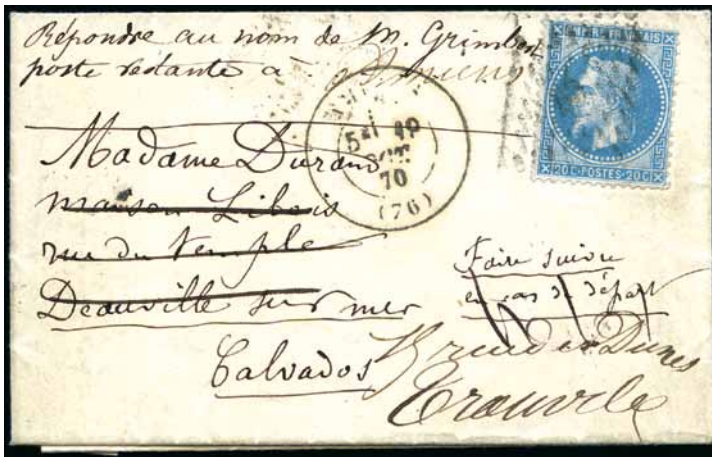 Répondre au nom de M. Grimbert
poste restante a Amiens
EMPIRE FRANÇAIS
20 C-POSTES-20 C
5E
OCT.
70
(76)
Madame Durand
maison Libois
rue du temple
Deauville sur mer
Calvados
Faire suivre
en cas de départ
rue des Dunes
Trouville